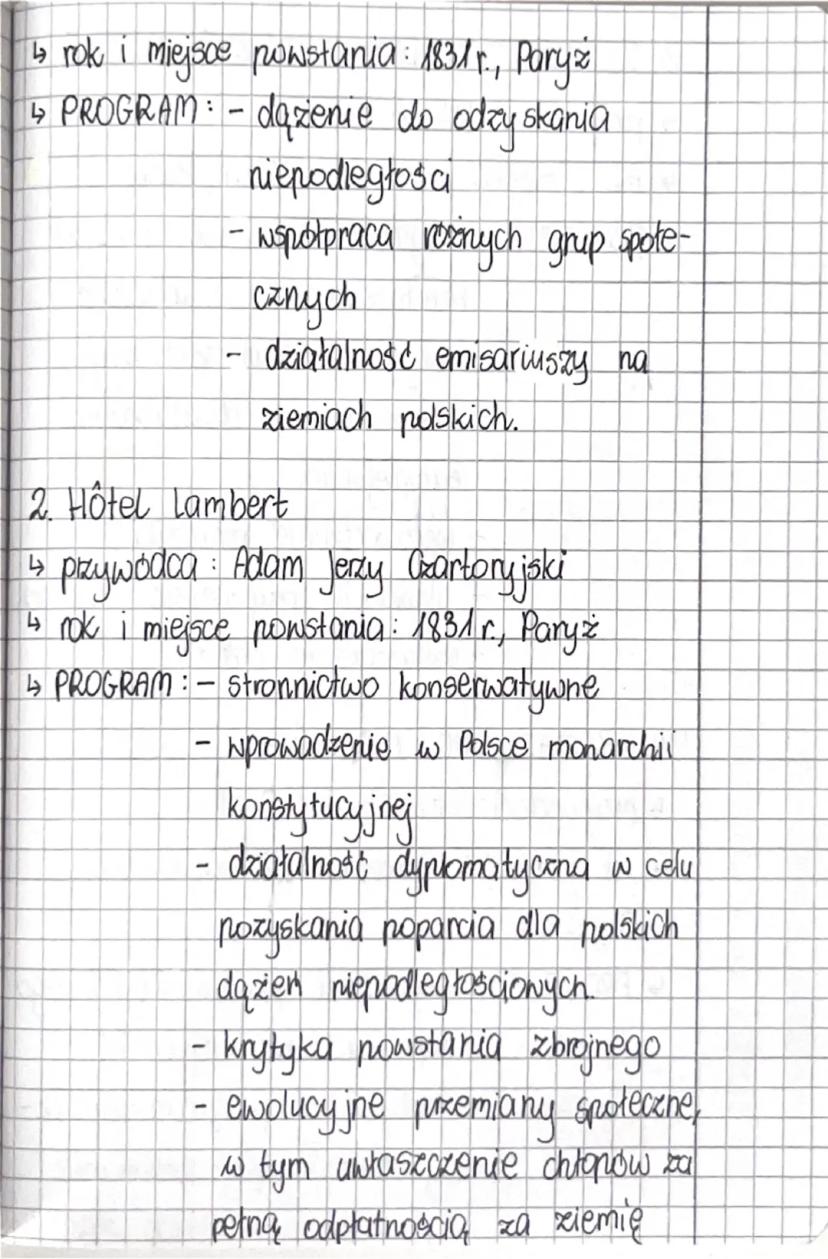 ↳ rok i miejsce powstania: 1831 r., Paryż
↳ PROGRAM: - dążenie do odzyskania
niepodległości
- współpraca różnych grup społe-
cznych
- działalność emisariuszy na
ziemiach polskich.
2. Hôtel Lambert
↳ przywódca: Adam Jerzy Czartoryjski
↳ rok i miejsce powstania: 1831 r., Paryż
↳ PROGRAM: - stronnictwo konserwatywne
- wprowadzenie w Polsce monarchii
konstytucyjnej
- działalność dyplomatyczna w celu
pozyskania poparcia dla polskich
dążeń niepodległościowych.
- krytyka powstania zbrojnego
- ewolucyjne przemiany społeczne,
w tym uwłaszczenie chłopów za
pełną odpłatnością za ziemię